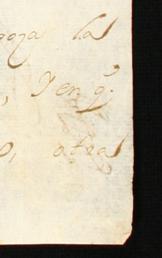 goza la
, Y en q.º
o, otras